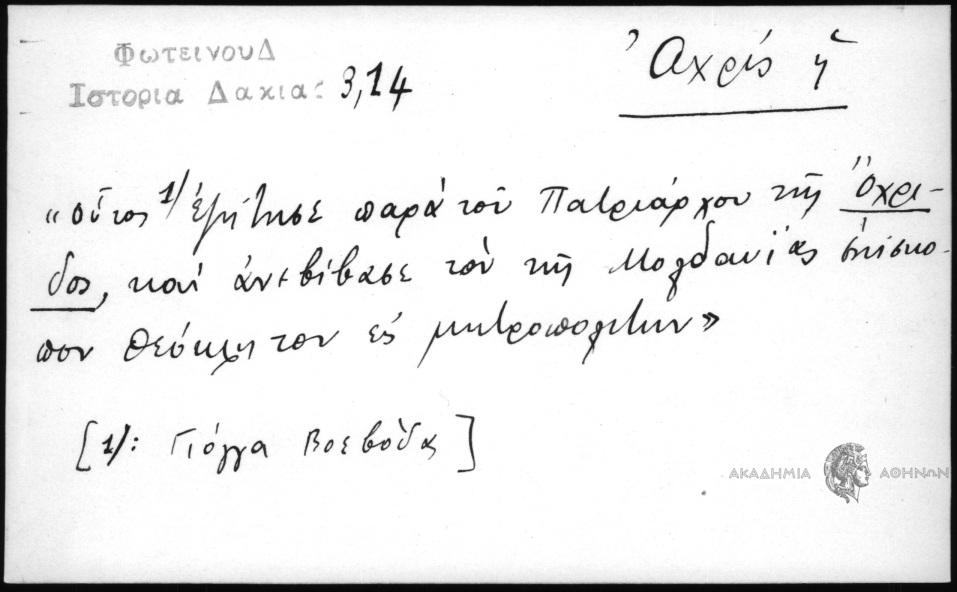 Φωτεινού Δ
Ιστορία Δακίας 3,14
Ὀχρίς ἡ
«οὗτος 1/ ἐζήτησε παρὰ τοῦ Πατριάρχου τῆς Ὀχρί-
δος, καὶ ἀνεβίβασε τὸν τῆς Μολδαυΐας ἐπίσκο-
πον Θεόκριτον εἰς μητροπολίτην»
[1/: Γιόγγα Βοεβόδας]
ΑΚΑΔΗΜΙΑ ΑΘΗΝΩΝ